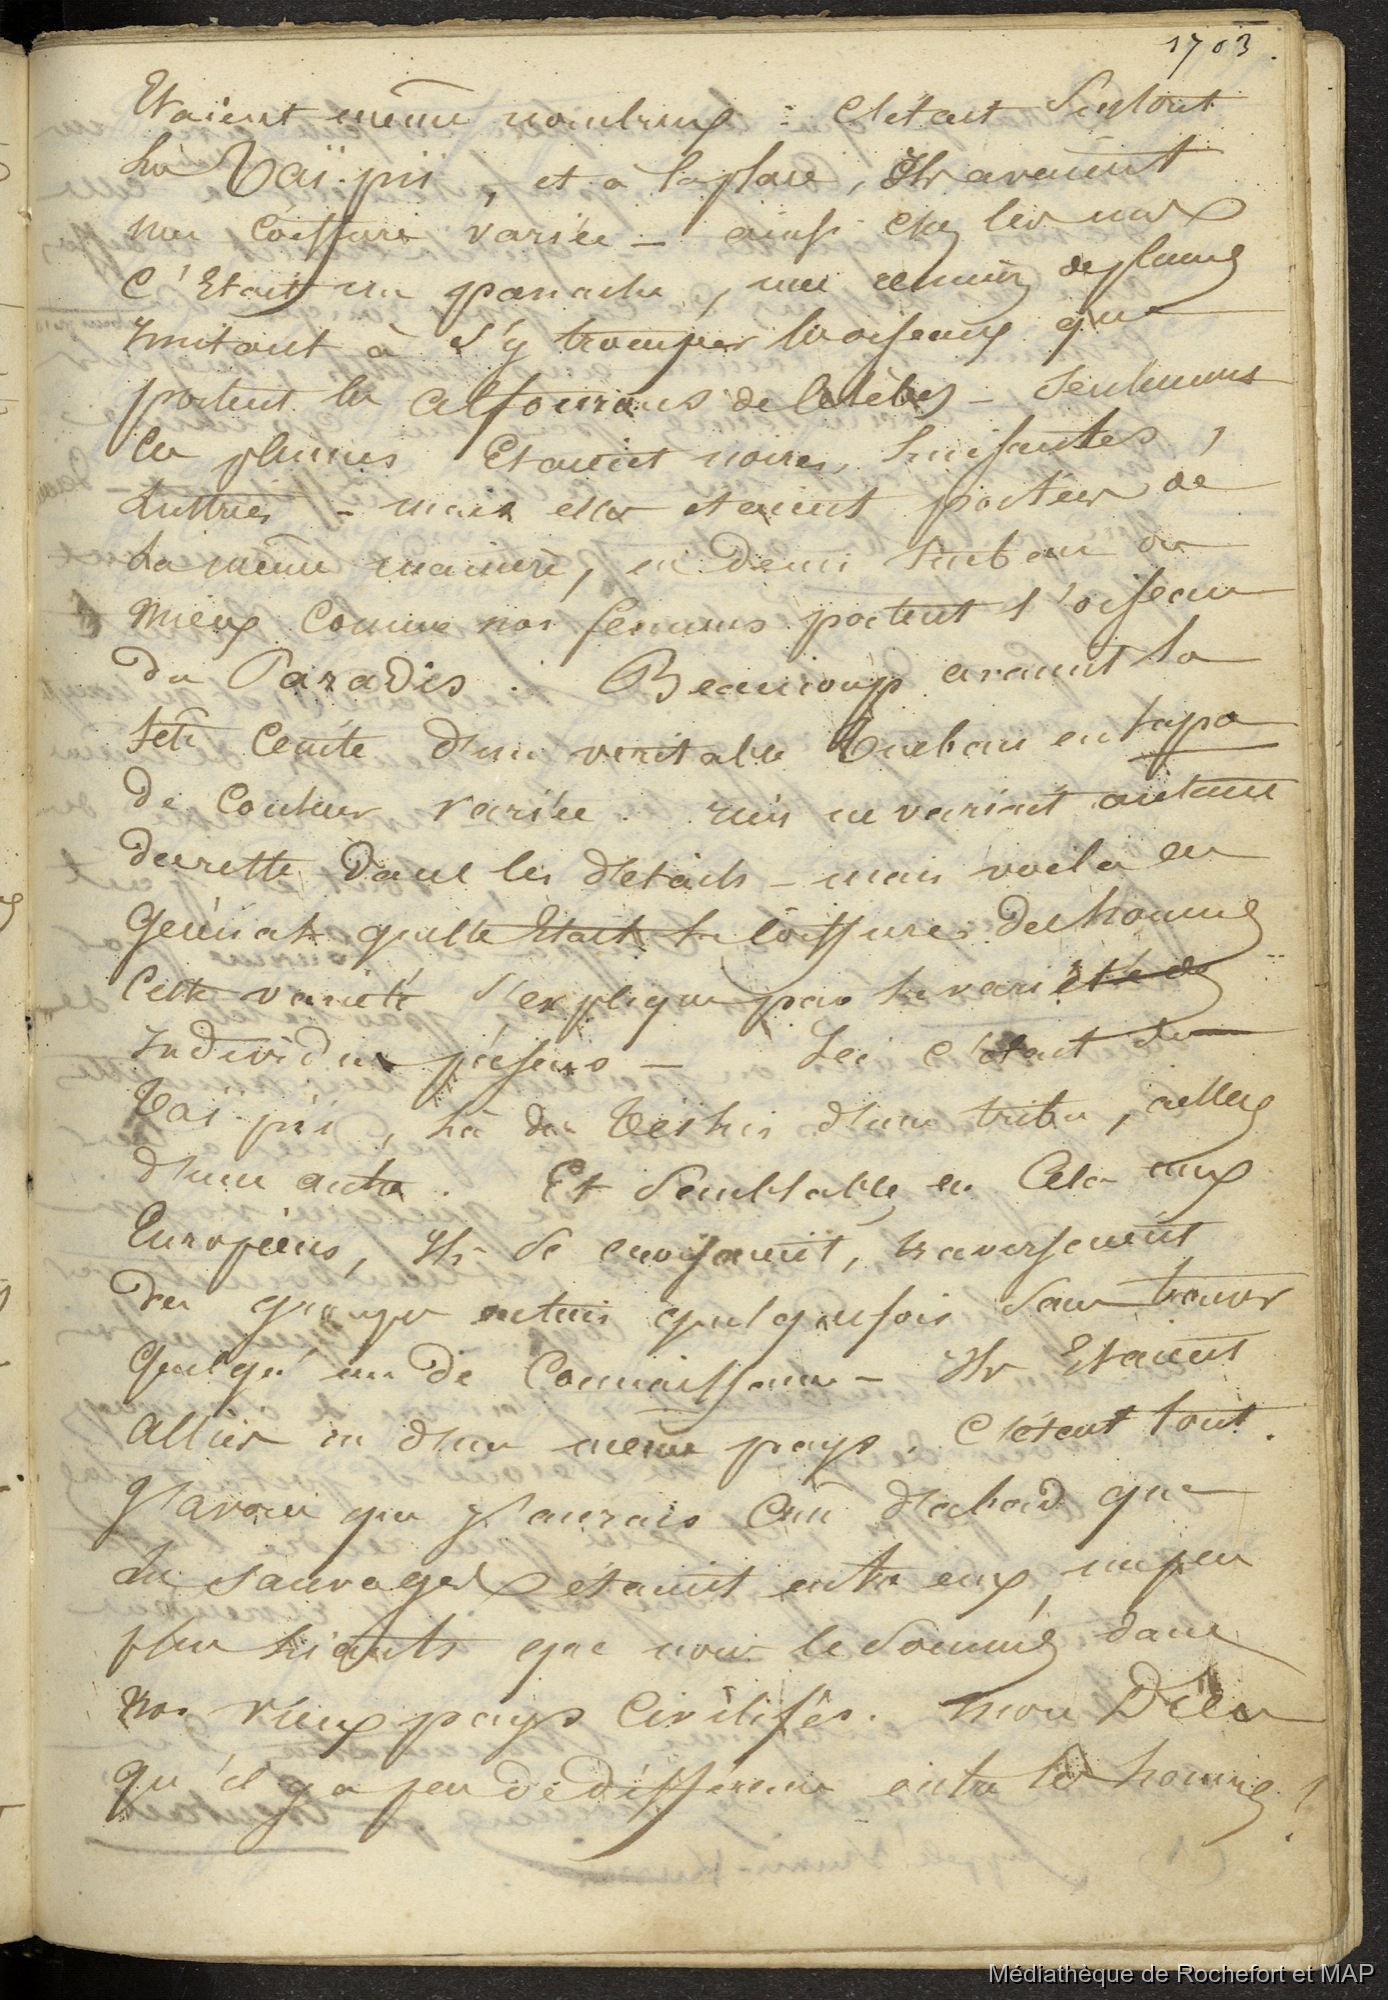 1703.
Etaient même nombreux : c'était surtout
les Vaï-pii, et à la place, Ils avaient
une Coiffure variée _ ainsi chez les uns
C'Etait un panache, une criniere de plumes
imitant à s'y tromper les oiseaux que
portent les alfourous de Celèbes _ seulement
les plumes Etaient noires, luisantes,
lustrées _ mais elles etaient portées de
la même manière, en demi turban ou
Mieux Comme nos femmes portent l'oiseau
du Paradis. Beaucoup avaient la
tête Ceinte d'un veritable turban en tapa
de Couleur variée. rien ne variait autant
du reste dans les détails _ mais voila en
Général quelle Etait la Coiffure des hommes
Cette varieté s'explique par la varieté des
individus présens _ Ici c'était des
Vaï-pii, là des Teihis d'une tribu, ailleurs
d'une autre. Et Semblable en Cela aux
Européens, Ils se croisaient, traversaient
des groupes entiers quelquefois sans trouver
quelqu'un de Connaissance _ Ils Etaient
alliés ou d'un même pays. C'était tout.
J'avoue que J'aurais Crû d'abord que
les sauvages étaient entre eux, un peu
plus liants que nous le sommes dans
nos vieux pays Civilisés. Mon Dieu
qu'il y a peu de différence entre les hommes !
Médiathèque de Rochefort et MAP